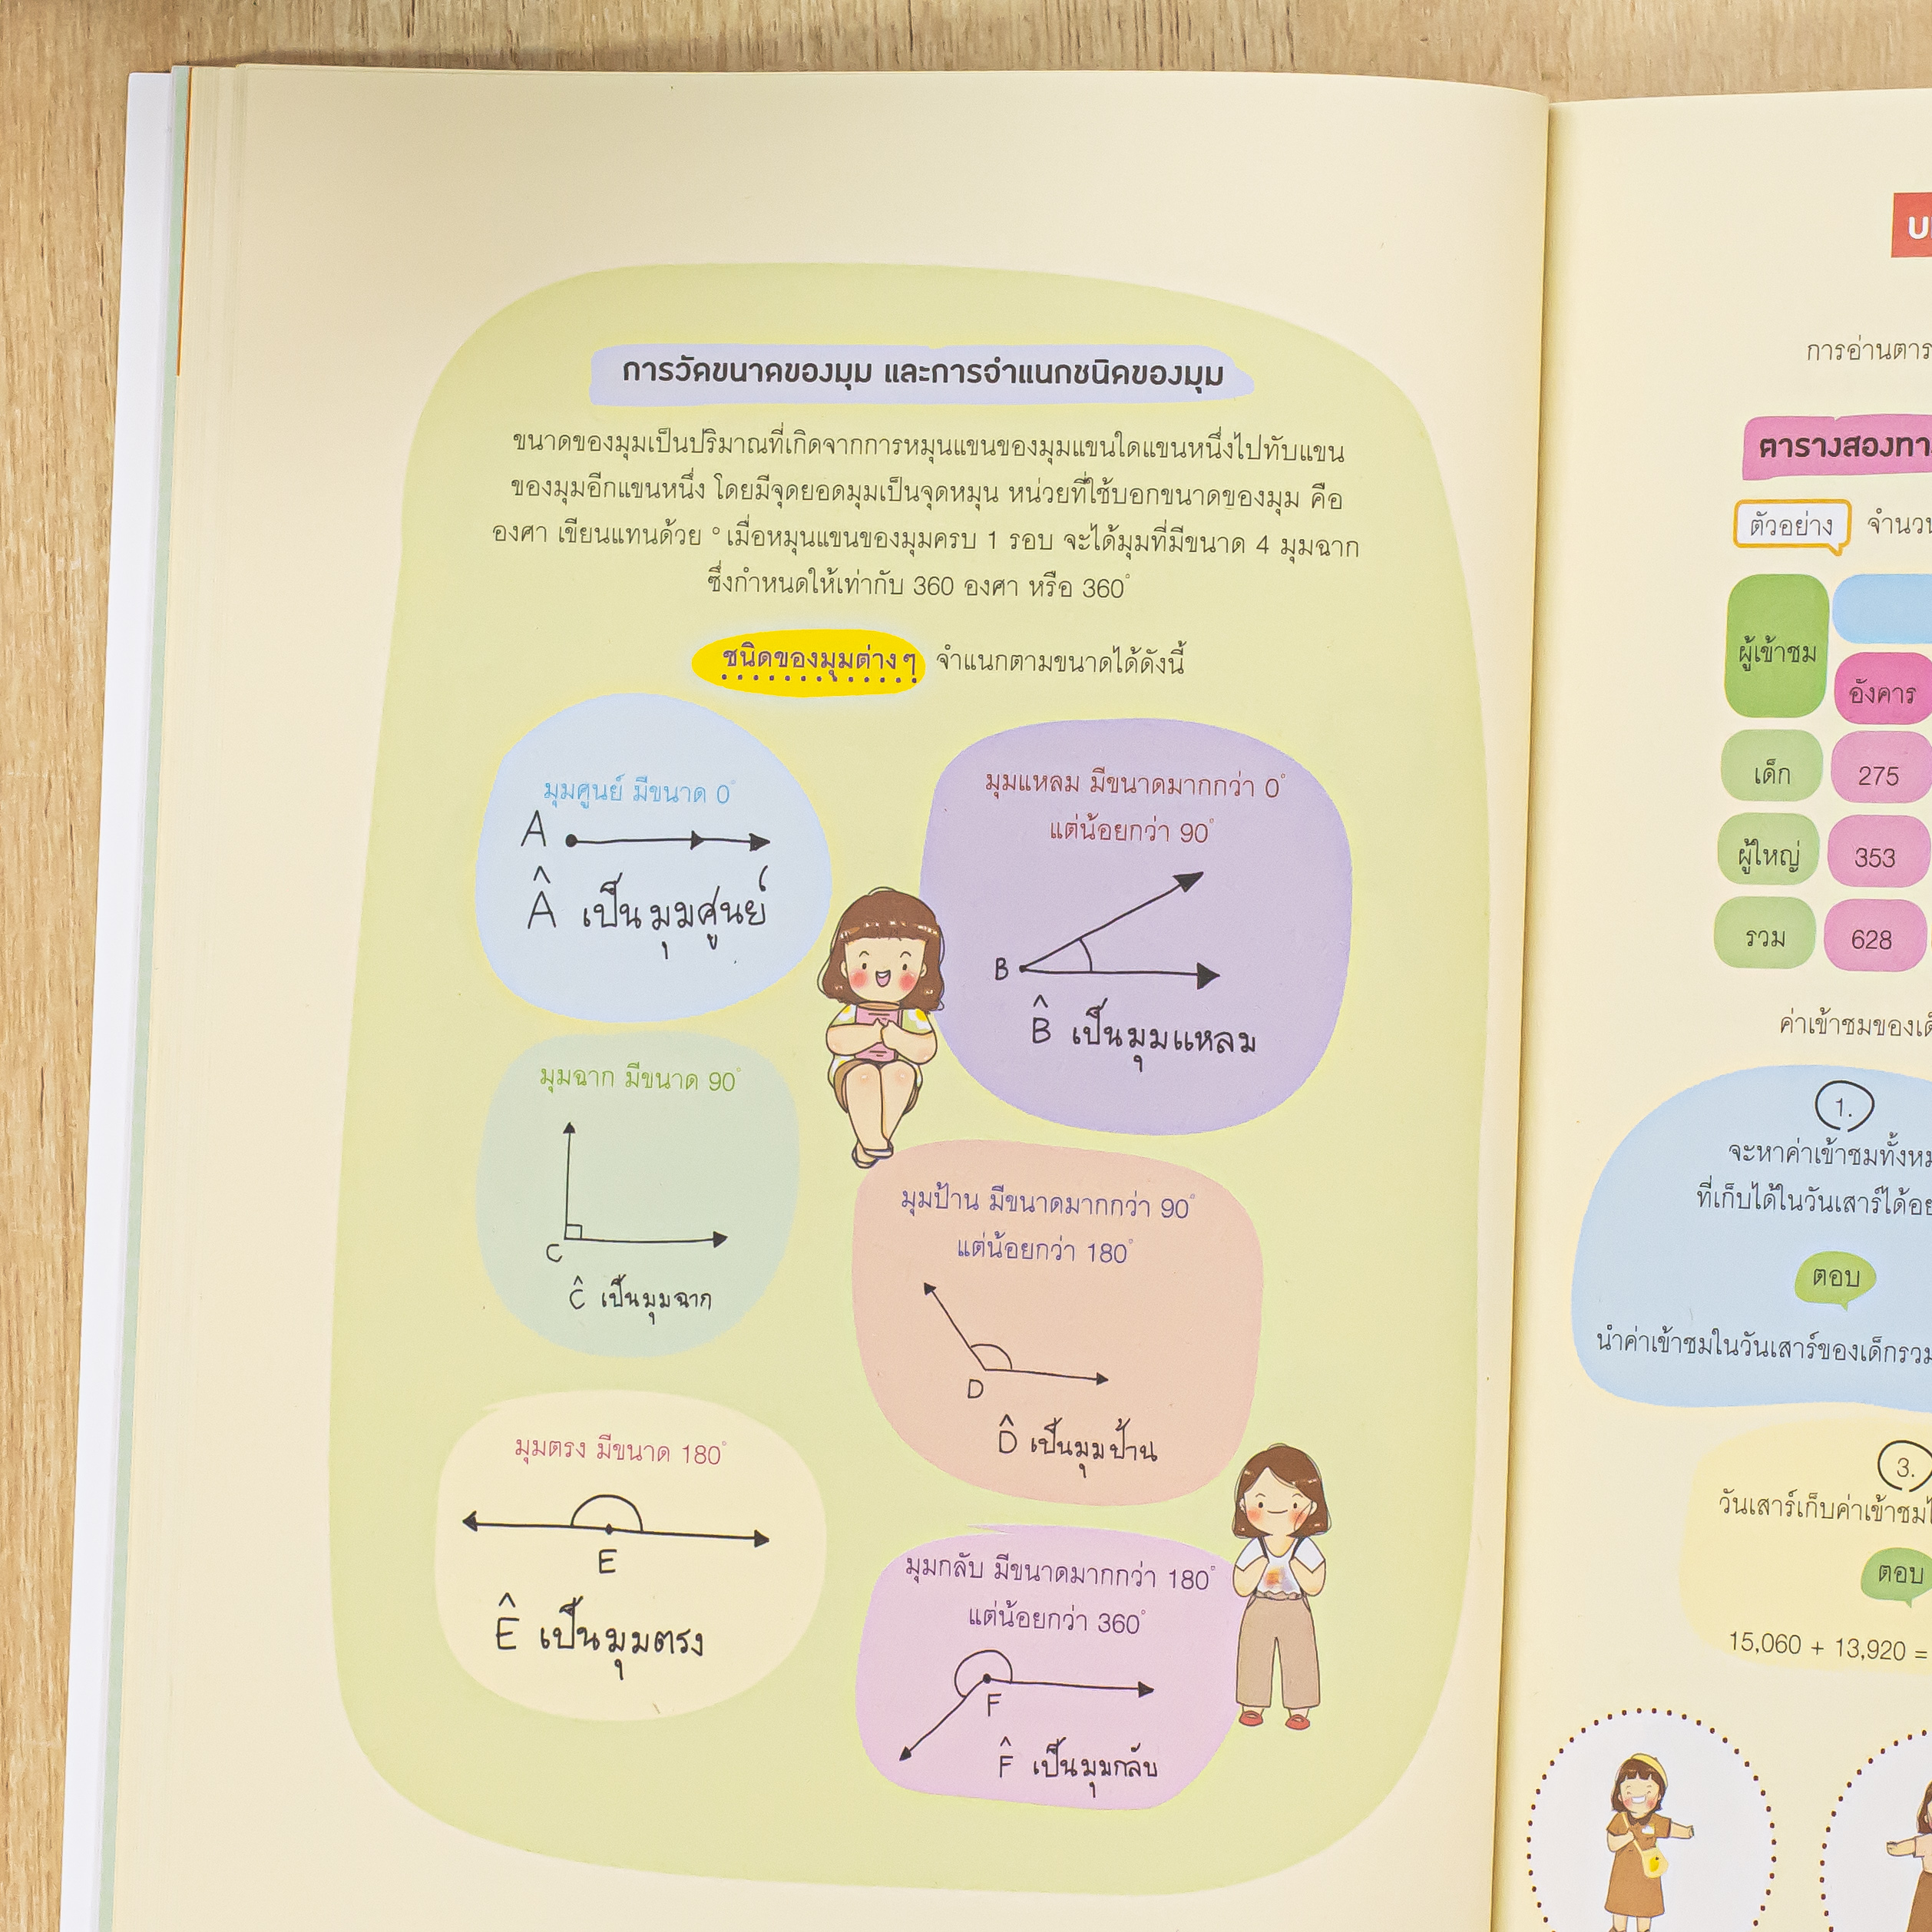 การวัดขนาดของมุม และการจำแนกชนิดของมุม
ขนาดของมุมเป็นปริมาณที่เกิดจากการหมุนแขนของมุมแขนใดแขนหนึ่งไปทับแขน
ของมุมอีกแขนหนึ่ง โดยมีจุดยอดมุมเป็นจุดหมุน หน่วยที่ใช้บอกขนาดของมุม คือ
องศา เขียนแทนด้วย ° เมื่อหมุนแขนของมุมครบ 1 รอบ จะได้มุมที่มีขนาด 4 มุมฉาก
ซึ่งกำหนดให้เท่ากับ 360 องศา หรือ 360°
ชนิดของมุมต่างๆ จำแนกตามขนาดได้ดังนี้
มุมศูนย์ มีขนาด 0°
A
Â เป็นมุมศูนย์
มุมแหลม มีขนาดมากกว่า 0°
แต่น้อยกว่า 90°
B
B̂ เป็นมุมแหลม
มุมฉาก มีขนาด 90°
C
Ĉ เป็นมุมฉาก
มุมป้าน มีขนาดมากกว่า 90°
แต่น้อยกว่า 180°
D
D̂ เป็นมุมป้าน
มุมตรง มีขนาด 180°
E
Ê เป็นมุมตรง
มุมกลับ มีขนาดมากกว่า 180°
แต่น้อยกว่า 360°
F
F̂ เป็นมุมกลับ
การอ่านตาร
ตารางสองทา
ตัวอย่าง จำนวน
ผู้เข้าชม
อังคาร
เด็ก 275
ผู้ใหญ่ 353
รวม 628
ค่าเข้าชมของเด็
1.
จะหาค่าเข้าชมทั้งหม
ที่เก็บได้ในวันเสาร์ได้อย
ตอบ
นำค่าเข้าชมในวันเสาร์ของเด็กรวม
3.
วันเสาร์เก็บค่าเข้าชมได้
ตอบ
15,060 + 13,920 =